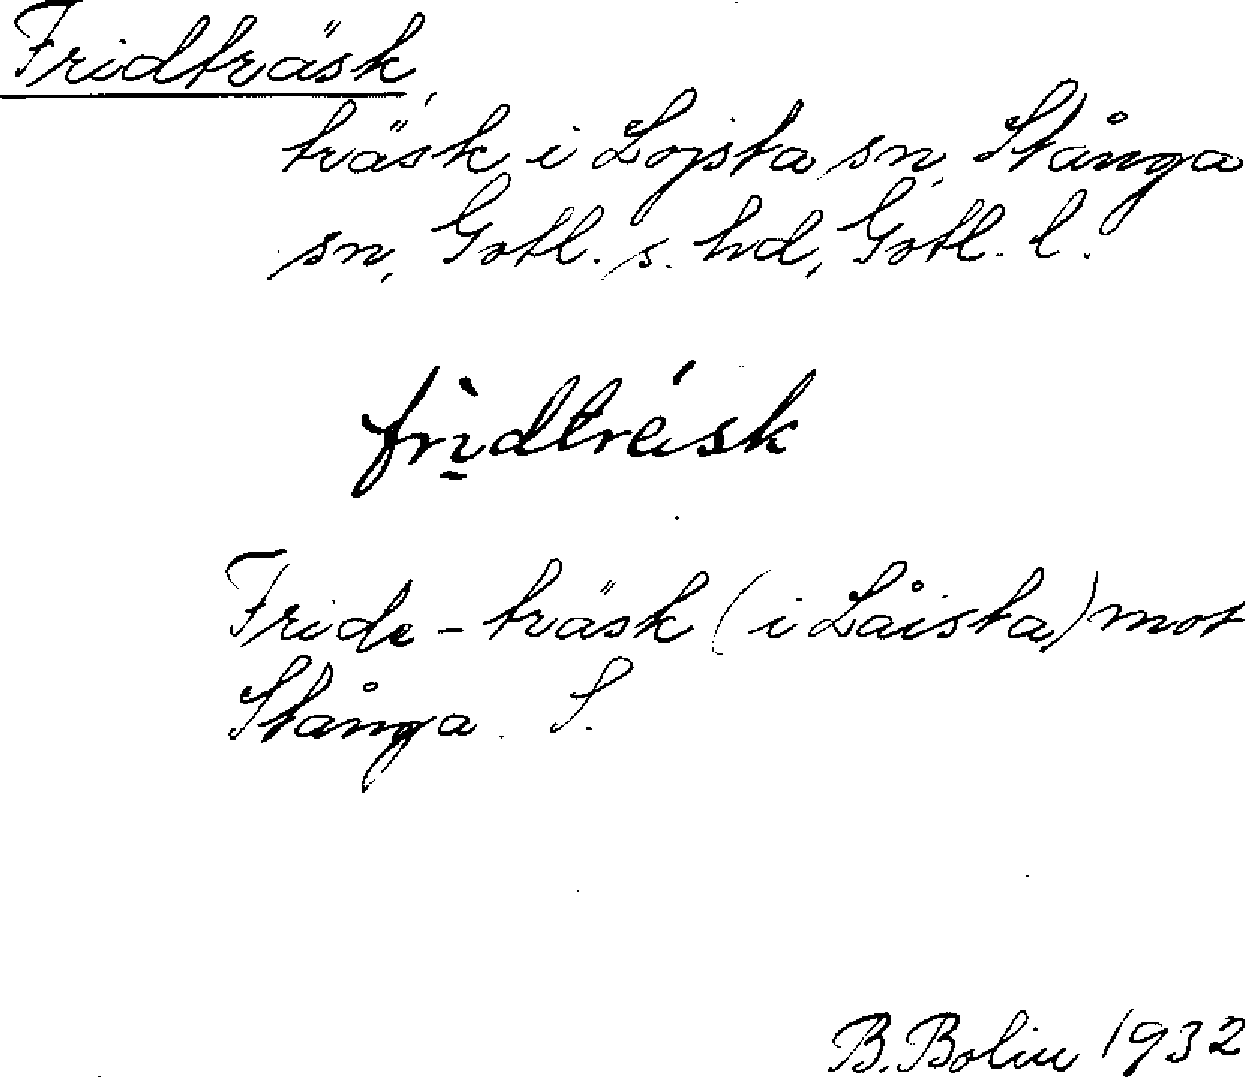 Fridträsk,
träsk i Lojsta sn, Stånga
sn, Gotl. s. hd, Gotl. l.
frì̱dtrésk
Fride-träsk (i Låista) mot
Stånga. S.
B. Bolin 1932